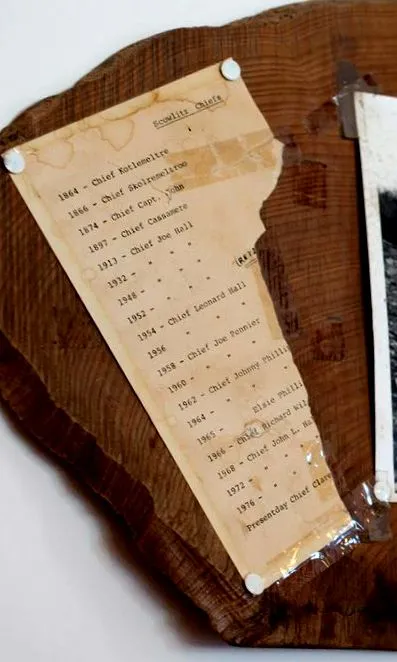 Scowlitz Chiefs
1864 - Chief Kotlemeltre
1866 - Chief Skolremeltroo
1874 - Chief Capt. John
1897 - Chief Cassamere
1913 - Chief Joe Hall
1932 - " " "
1948 - " " "
1952 - " " "
1954 - Chief Leonard Hall
1956 " " "
1958 - Chief Joe Pennier
1960 - " " "
1962 - Chief Johnny Philli
1964 - " " "
1965 - Elsie Philli
1966 - Chief Richard Wil
1968 - Chief John L. Ha
1972 - " " "
1976 - " " "
Presentday Chief Clare